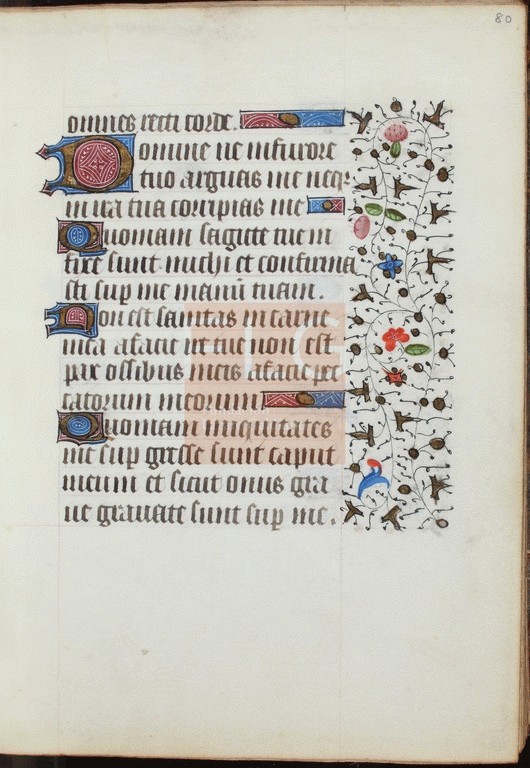 80
omnes recti corde.
Domine ne infurore
tuo arguas me neqȝ
in ira tua corripias me
Quoniam sagitte tue in
fixe sunt michi et confirma
sti sup me manū tuam.
Non est sanitas in carne
mea afacie ire tue non est
pax ossibus meis afacie pec
catorum meorum
Quoniam iniquitates
me sup gresse sunt caput
meum et sicut onus gra
ue grauate sunt sup me.